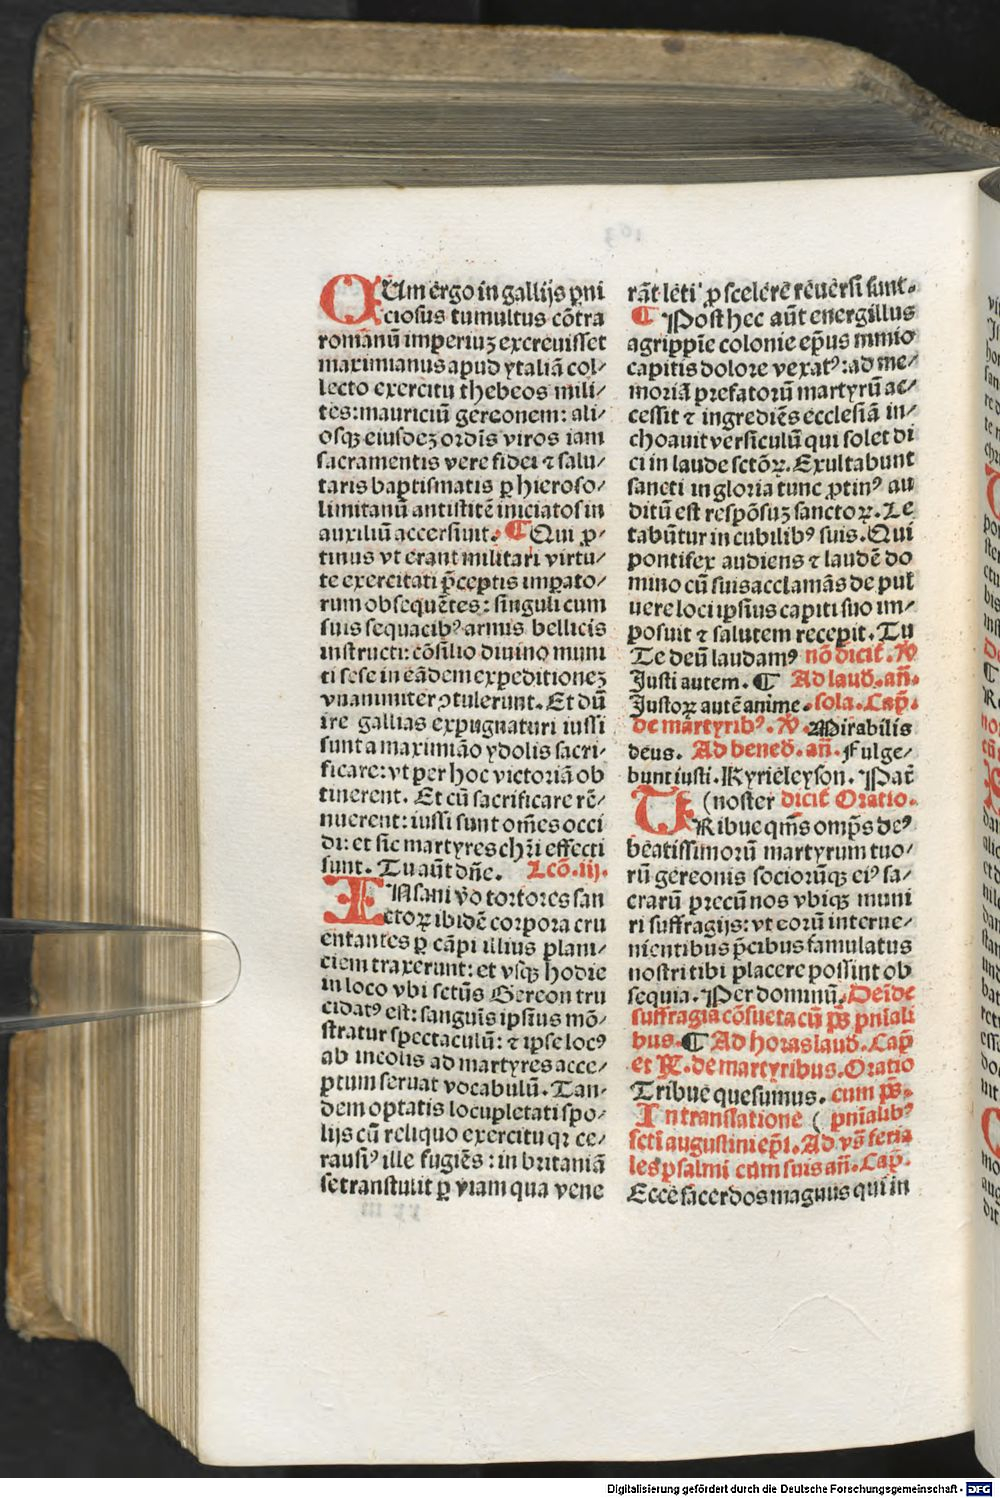 QUm ergo in gallijs ꝑni
ciosus tumultus cōtra
romanū imperiuꝫ excreuisset
maximianus apud ytaliā col⸗
lecto exercitu thebeos mili⸗
tes: mauriciū gereonem: ali⸗
osqꝫ eiusdeꝫ ordīs viros iam
sacramentis vere fidei ⁊ salu⸗
taris baptismatis ꝑ hieroso⸗
limitanū antistitē iniciatos in
auxiliū accersiuit. ¶ Qui ꝓ⸗
tinus vt erant militari virtu⸗
te exercitati p̄ceptis impato⸗
rum obsequētes: singuli cum
suis sequacibꝰ armis bellicis
instructi: cōsilio diuino muni
ti sese in eādem expeditioneꝫ
vnanimiter ꝯtulerunt. Et dū
ire gallias expugnaturi iussi
sunt a maximiāo ydolis sacri⸗
ficare: vt per hoc victoriā ob
tinerent. Et cū sacrificare rē⸗
nuerent: iussi sunt om̄es occi
di: et sic martyres chr̄i effecti
sunt. Tu aūt dn̄e. Lcō. iij.
INsani v̄o tortores san
ctoꝝ ibidē corpora cru
entantes ꝑ cāpi illius plani⸗
ciem traxerunt: et vsqꝫ hodie
in loco vbi sctūs Gereon tru
cidatꝰ est: sanguis ipsius mō⸗
stratur spectaculū: ⁊ ipse locꝰ
ab incolis ad martyres acce⸗
ptum seruat vocabulū. Tan⸗
dem optatis locupletati spo⸗
lijs cū reliquo exercitu qꝛ ce⸗
rausiꝰ ille fugiēs: in britaniā
se transtulit ꝑ viam qua vene
rāt leti ꝓ scelere reuersi sunt.
¶ Post hec aūt energillus
agrippīe colonie ep̄us nimio
capitis dolore vexatꝰ: ad me⸗
moriā prefatorū martyrū ac⸗
cessit ⁊ ingrediēs ecclesiā in⸗
choauit versiculū qui solet di
ci in laude sctōꝝ. Exultabunt
sancti in gloria tunc ꝓtinꝰ au
ditū est respōsuꝫ sanctoꝝ. Le
tabūtur in cubilibꝰ suis. Qui
pontifex audiens ⁊ laudē do
mino cū suis acclamās de pul
uere loci ipsius capiti suo im⸗
posuit ⁊ salutem recepit. Tu
Te deū laudamꝰ nō dicit̄. ℣
Justi autem. ¶ Ad laud. an̄.
Justoꝝ autē anime. sola. Cap̄.
de martyribꝰ. ℣. Mirabilis
deus. Ad bened. an̄. Fulge⸗
bunt iusti. Kyrieleyson. Pat̄
(noster dicit̄ Oratio.
TRibue qm̄s omp̄s deꝰ
beatissimorū martyrum tuo⸗
rū gereonis sociorūqꝫ eiꝰ sa⸗
crarū precū nos vbiqꝫ muni
ri suffragijs: vt eorū interue⸗
nientibus p̄cibus famulatus
nostri tibi placere possint ob
sequia. Per dominū. Deīde
suffragia cōsueta cū p̄s pn̄iali
bus. ¶ Ad horas laud. Cap̄
et ℟. de martyribus. Oratio
Tribue quesumus. cum p̄s.
In translatione ( pn̄ialibꝰ
scti augustini ep̄i. Ad vs̄ feria
les psalmi cum suis an̄. Cap̄.
Ecce sacerdos magnus qui in
Digitalisierung gefördert durch die Deutsche Forschungsgemeinschaft - DFG